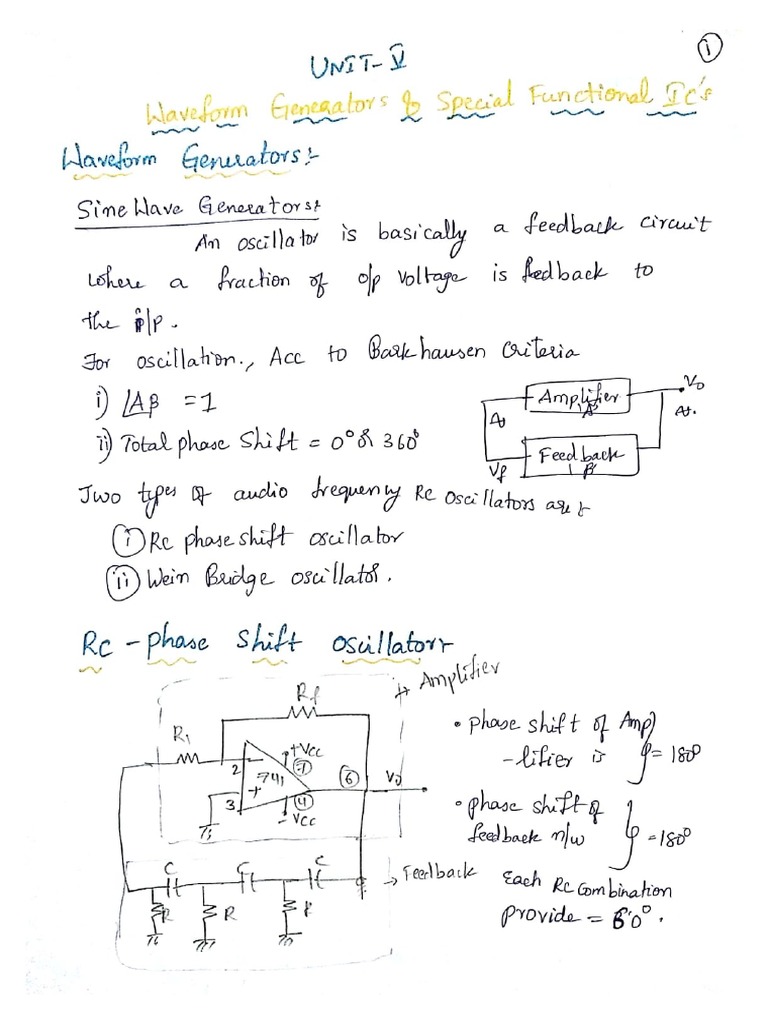 1
UNIT-V
Waveform Generators & Special Functional Ic's
Waveform Generators:-
Sine Wave Generators:
An oscillator is basically a feedback circuit
where a fraction of o/p voltage is fedback to
the i/p.
For oscillation., Acc to Barkhausen Criteria
i) ∠Aβ = 1
ii) Total phase Shift = 0° or 360°
Amplifier
'A'
Vo
Feedback
'B'
Vf
Two types of audio frequency RC oscillators are :-
(i) Rc phase shift oscillator
(ii) Wein Bridge oscillator.
Rc - phase shift oscillator:-
→ Amplifier
Rf
R1
+Vcc
2
7
741
6
Vo
3
+
4
-Vcc
• phase shift of Ampl
-lifier is φ = 180°
• phase shift of
feedback n/w φ = 180°
C C C
R R R
→ Feedback
Each RC combination
provide = 60°.